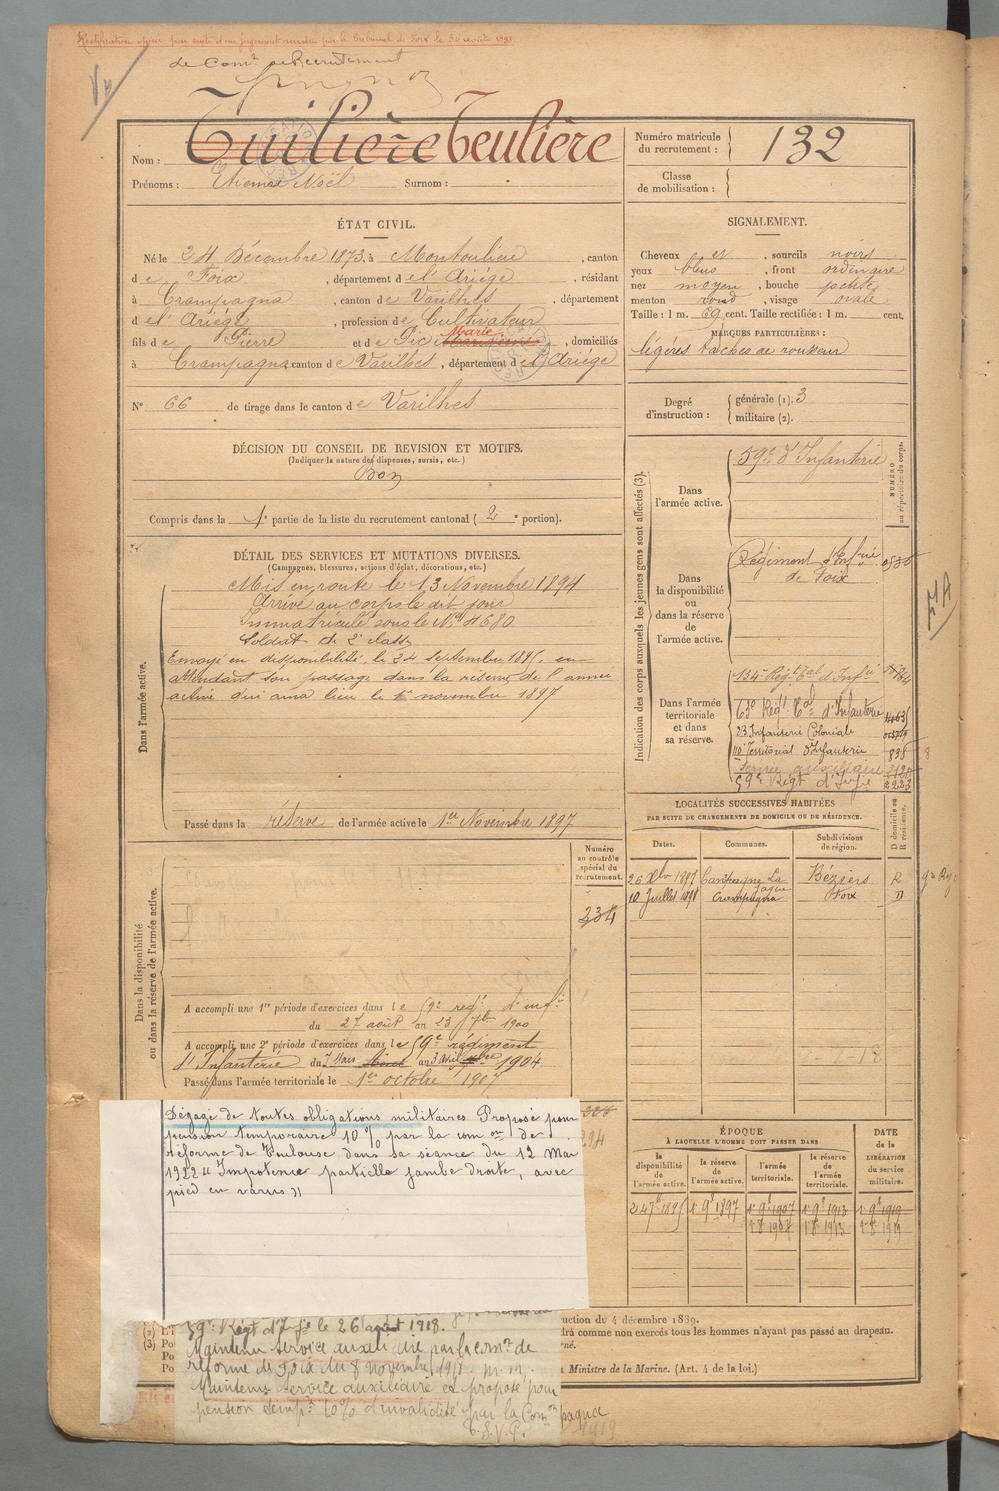 Rectification opérée par suite d'un jugement rendu par le tribunal de Foix le 30 août 1898
de Comt de Recrutement
Tuilière Teulière
Nom :
Prénoms : Etienne Noël Surnom :
Numéro matricule du recrutement : 132
Classe de mobilisation :
ÉTAT CIVIL.
Né le 24 Décembre 1873, à Montoulieu, canton
de Foix, département de l'Ariège, résidant
à Crampagna, canton de Varilhes, département
de l'Ariège, profession de Cultivateur
fils de Pierre et de Pic Marie, domiciliés
à Crampagna canton de Varilhes, département de l'Ariège
N° 66 de tirage dans le canton de Varilhes
SIGNALEMENT.
Cheveux et, sourcils noirs
yeux bleus, front ordinaire
nez moyen, bouche petite
menton rond, visage ovale.
Taille : 1 m. 69 cent. Taille rectifiée : 1 m. cent.
MARQUES PARTICULIÈRES :
légères taches de rousseur
Degré d'instruction : générale (1). 3
militaire (2).
DÉCISION DU CONSEIL DE REVISION ET MOTIFS.
(Indiquer la nature des dispenses, sursis, etc.)
Bon
Compris dans la 1e partie de la liste du recrutement cantonal (2e portion).
DÉTAIL DES SERVICES ET MUTATIONS DIVERSES.
(Campagnes, blessures, actions d'éclat, décorations, etc.)
Dans l'armée active.
Mis en route le 13 Novembre 1894
Arrivé au corps le dit jour
Immatriculé sous le No 4680
Soldat de 2e classe
Envoyé en disponibilité le 24 septembre 1895, en
attendant son passage dans la réserve de l'armée
active qui aura lieu le 1er novembre 1897
Passé dans la réserve de l'armée active le 1er Novembre 1897
Indication des corps auxquels les jeunes gens sont affectés (3).
NUMÉRO au répertoire du corps.
Dans l'armée active.
59e d'Infanterie
Dans la disponibilité ou dans la réserve de l'armée active.
Régiment d'Infrie
de Foix
Dans l'armée territoriale et dans sa réserve.
134e Régt Tal d'Infie
63e Régt Tal d'Infanterie
23 Infanterie Coloniale
110e Territorial d'Infanterie
Service auxiliaire
59e Régt d'Infie
LOCALITÉS SUCCESSIVES HABITÉES
PAR SUITE DE CHANGEMENTS DE DOMICILE OU DE RÉSIDENCE.
D domicile ou R résidence.
Dates. Communes. Subdivisions de région.
Béziers R
10 Juillet 1898 Crampagna Foix D
Dans la disponibilité ou dans la réserve de l'armée active.
Numéro au contrôle spécial du recrutement.
234
A accompli une 1re période d'exercices dans le 59e regt d'infie
du 27 août au 23 7bre 1900
A accompli une 2e période d'exercices dans le 59e régiment
d'Infanterie du 7 Mars au 3 Avril 1904
Passé dans l'armée territoriale le 1er octobre 1907
Dégagé de toutes obligations militaires Proposé pour
pension temporaire 10 % par la comon de
réforme de Toulouse dans sa séance du 12 Mai
1922 "Impotence partielle jambe droite, avec
pied en varus"
ÉPOQUE
À LAQUELLE L'HOMME DOIT PASSER DANS
la disponibilité de l'armée active. la réserve de l'armée active. l'armée territoriale. la réserve de l'armée territoriale.
DATE de la LIBÉRATION du service militaire.
24 7bre 1895 1er 9bre 1897
59e Régt d'Infie le 26 août 1918.
Maintenu service auxiliaire par la comon de
réforme de Foix du 8 novembre 1917
Maintenu service auxiliaire et proposé pour
pension temp 10% d'invalidité par la Comon
T.S.V.P.
ction du 4 décembre 1889.
drà comme non exercés tous les hommes n'ayant pas passé au drapeau.
Ministre de la Marine. (Art. 4 de la loi.)